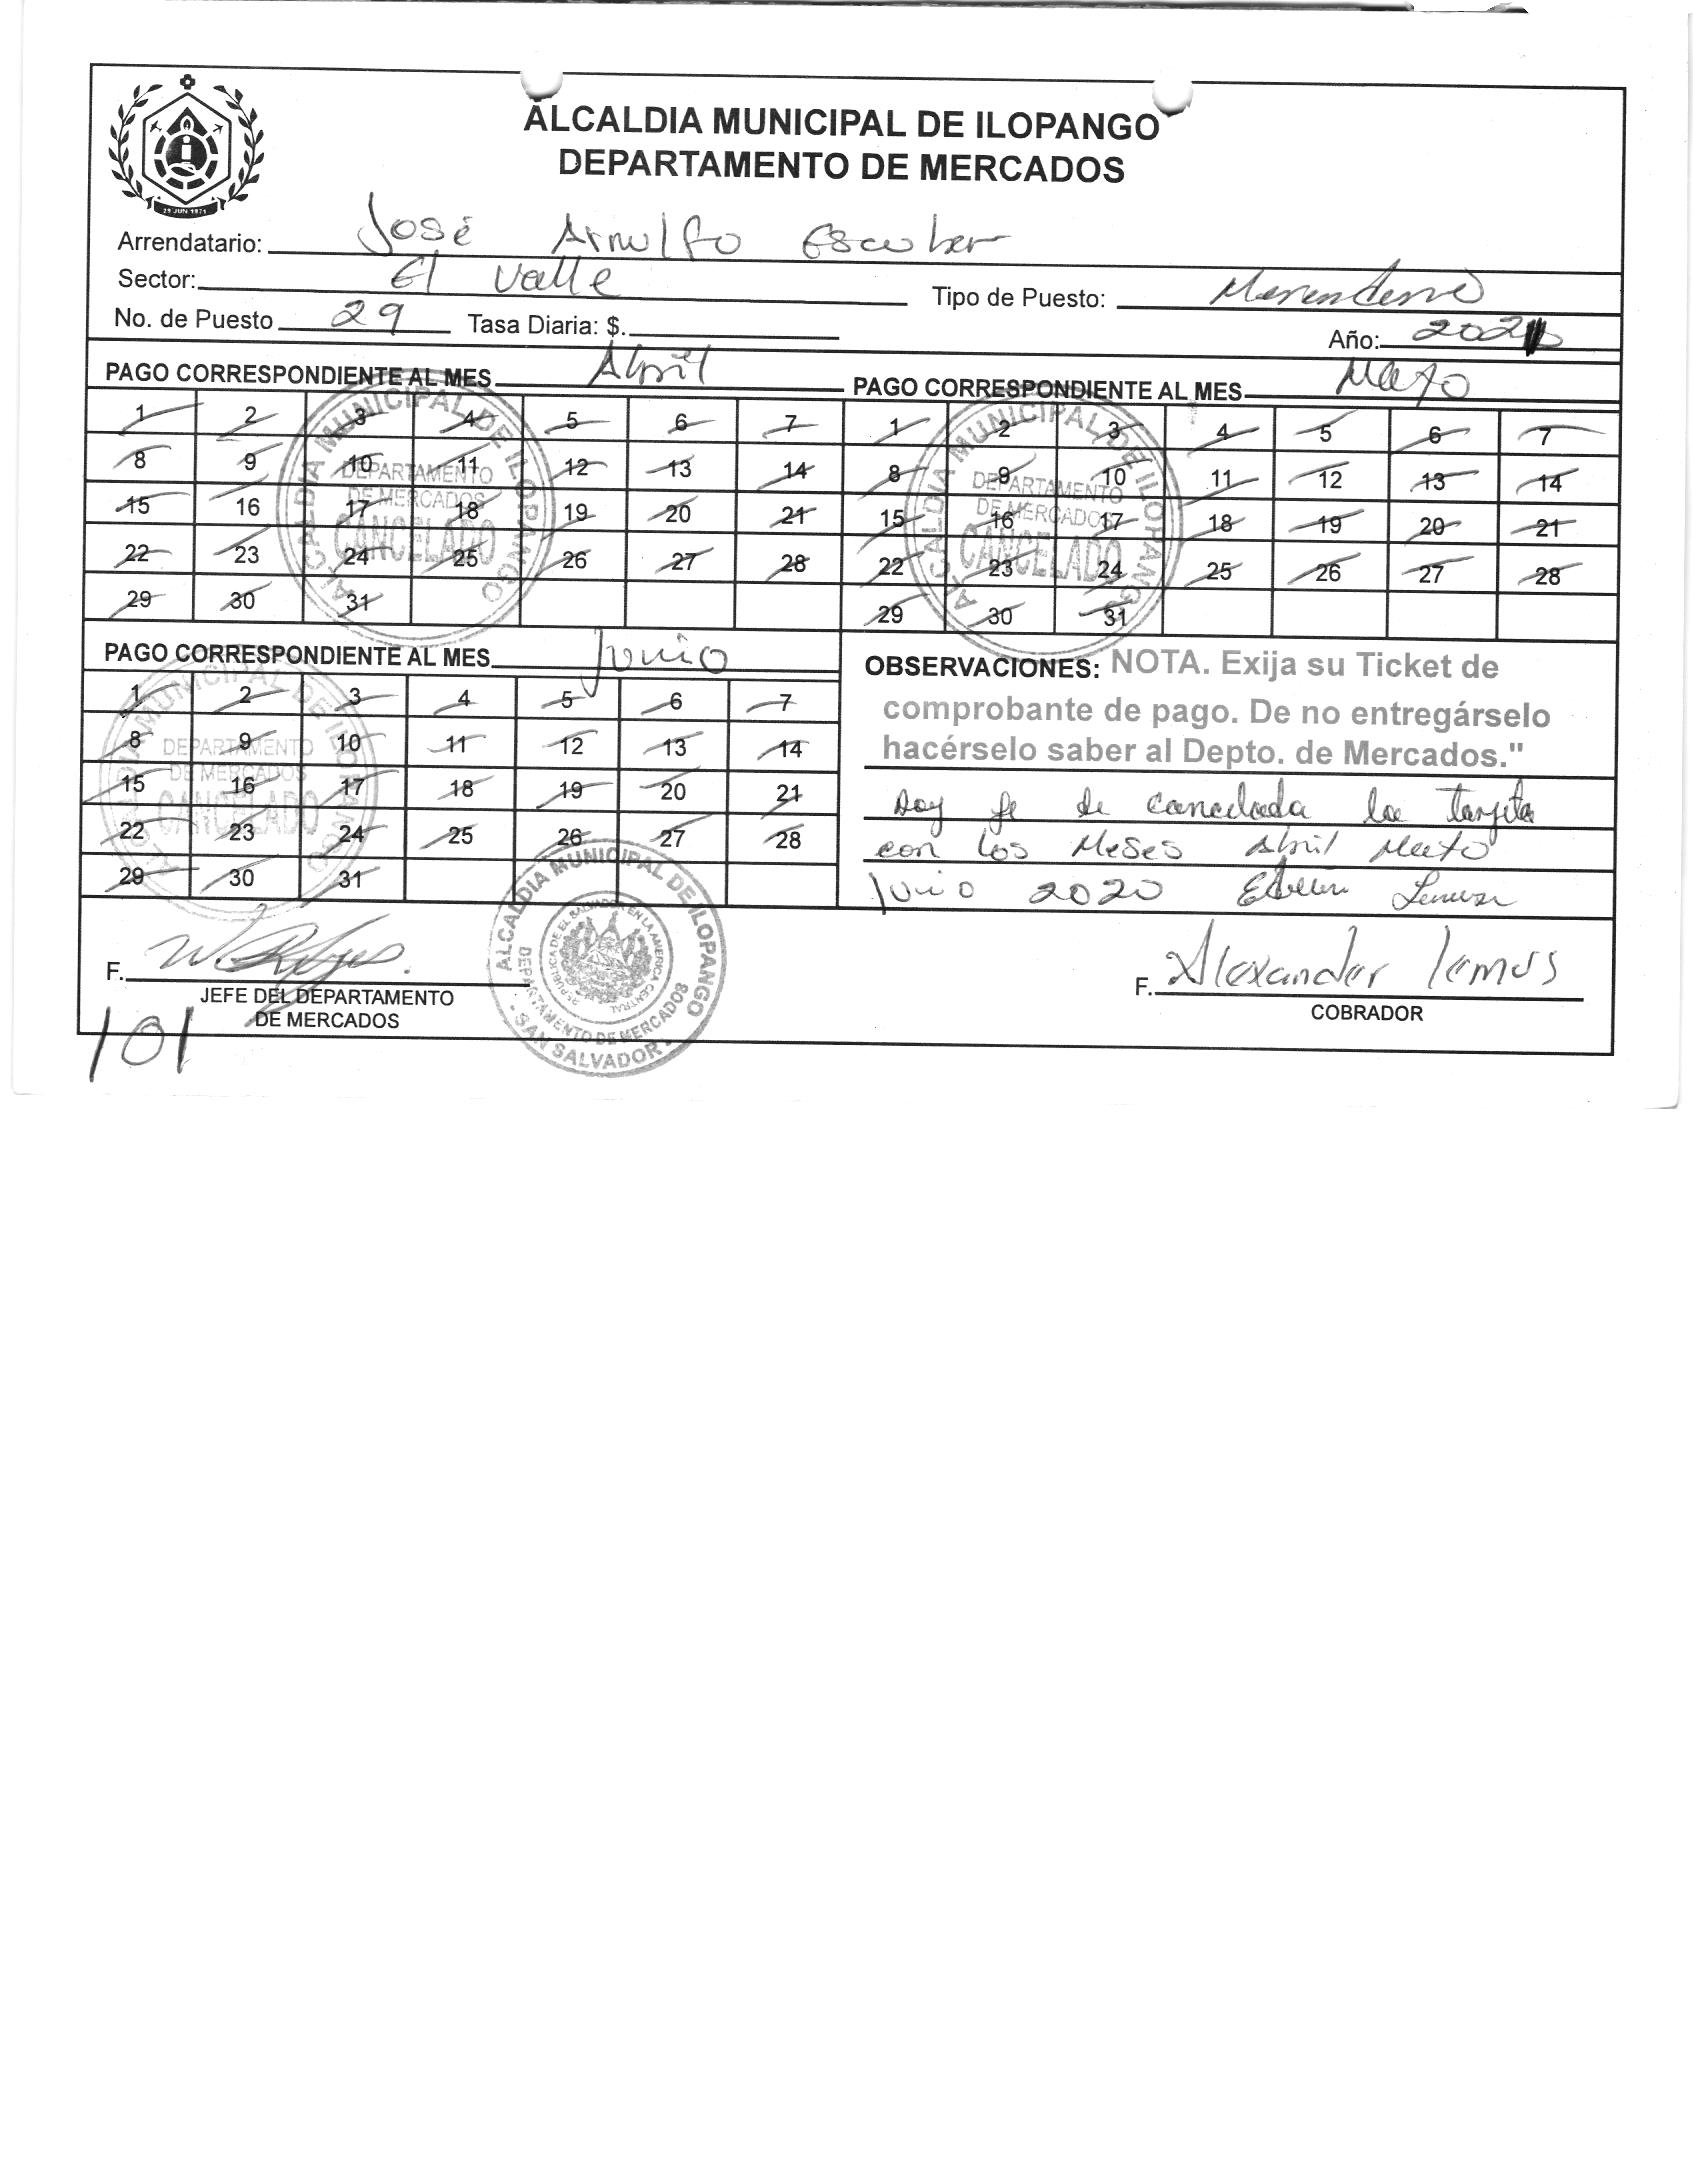 ALCALDIA MUNICIPAL DE ILOPANGO
DEPARTAMENTO DE MERCADOS
29 JUN 1971
Arrendatario: José Arnulfo Escobar
Sector: El Valle Tipo de Puesto: Merendero
No. de Puesto 29 Tasa Diaria: $. Año: 202
PAGO CORRESPONDIENTE AL MES Abril
1 2 3 4 5 6 7
8 9 10 11 12 13 14
15 16 17 18 19 20 21
22 23 24 25 26 27 28
29 30 31
ALCALDIA MUNICIPAL DE ILOPANGO
DEPARTAMENTO
DE MERCADOS
CANCELADO
PAGO CORRESPONDIENTE AL MES Mayo
1 2 3 4 5 6 7
8 9 10 11 12 13 14
15 16 17 18 19 20 21
22 23 24 25 26 27 28
29 30 31
ALCALDIA MUNICIPAL DE ILOPANGO
DEPARTAMENTO
DE MERCADOS
CANCELADO
PAGO CORRESPONDIENTE AL MES Junio
1 2 3 4 5 6 7
8 9 10 11 12 13 14
15 16 17 18 19 20 21
22 23 24 25 26 27 28
29 30 31
ALCALDIA MUNICIPAL DE ILOPANGO
DEPARTAMENTO
DE MERCADOS
CANCELADO
OBSERVACIONES: NOTA. Exija su Ticket de
comprobante de pago. De no entregárselo
hacérselo saber al Depto. de Mercados."
Doy fe de cancelada la tarjeta
con los Meses Abril Mayo
Junio 2020
F.
JEFE DEL DEPARTAMENTO
DE MERCADOS
ALCALDIA MUNICIPAL DE ILOPANGO
DEPARTAMENTO DE MERCADOS
REPUBLICA DE EL SALVADOR EN LA AMERICA CENTRAL
- SAN SALVADOR -
F. Alexander lemus
COBRADOR
101